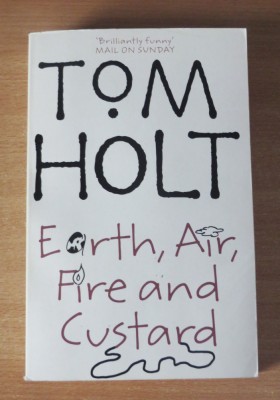 "Brilliantly funny"
MAIL ON SUNDAY
TOM
HOLT
Earth, Air,
Fire and
Custard